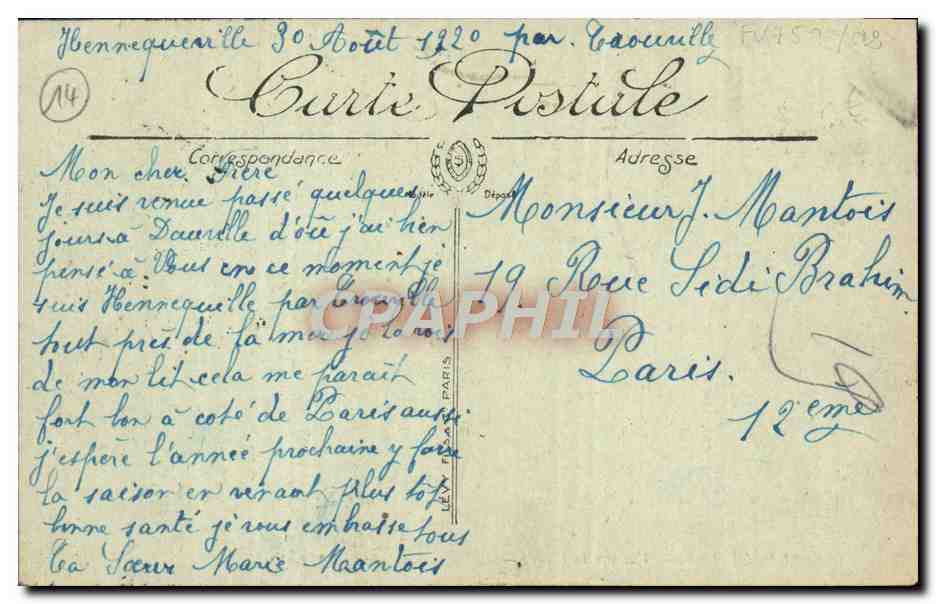 Hennequeville 30 Août 1920 par. Trouville
14
Carte Postale
Correspondance
Adresse
Mon cher Frère
Je suis venue passé quelques
jours à Dauville d'où j'ai bien
pensé à Vous en ce moment je
suis Hennequille par Trouville
tout près de la mer je la vois
de mon lit cela me parait
fort bon à coté de Paris aussi
j'espère l'année prochaine y faire
la saison en venant plus tôt
bonne santé je vous embrasse tous
ta Sœur Marie Mantois
Monsieur J. Mantois
19 Rue Sidi Brahim
Paris.
12eme
LÉVY FILS & Cie PARIS
CPAPHIL